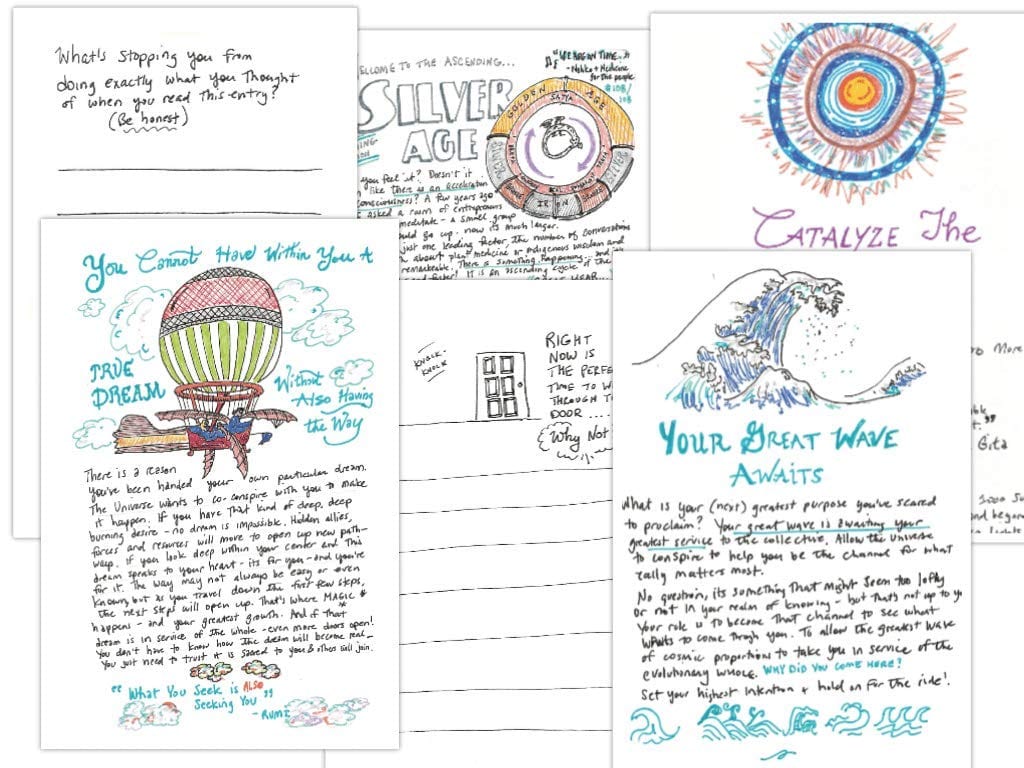 What's stopping you from
doing exactly what you Thought
of when you read This entry?
(Be honest)
ELCOME TO THE ASCENDING...
SILVER
AGE
"WE ARE ON TIME..."
- Nahko + Medicine
for the people
#108/
108
GOLDEN AGE
SATYA
SILVER
SILVER
BRONZE
IRON
BRONZE
you feel it? Doesn't it
like there is an acceleration
consciousness? A few years ago
asked a room of entrepreneurs
meditate - a small group
ould go up. now it's much larger.
just one leading factor, the number of conversations
about plant medicine or indigenous wisdom and
remarkable. There is something happening... and
faster! It is an ascending cycle of the
CATALYZE The
More
Gita
1000
and began
You Cannot Have Within You A
TRUE
DREAM
Without
Also Having
the Way
There is a reason
you've been handed your own particular dream.
The Universe wants to co-conspire with you to make
it happen. If you have That kind of deep, deep
burning desire - no dream is impossible. Hidden allies,
forces and resources will move to open up new path-
ways. if you look deep within your center and This
dream speaks to your heart - its for you - and you're
for it. The way may not always be easy or even
known, but as you travel down the first few steps,
the next steps will open up. That's where MAGIC
happens - and your greatest growth. And if That
dream is in service of the whole - even more doors open!
You don't have to know how The dream will become real -
You just need to trust it is sacred to you & others will join.
"What You Seek is ALSO
Seeking You"
- RUMI
KNOCK-
KNOCK
RIGHT
NOW IS
THE PERFE
TIME TO W
THROUGH T
DOOR ....
Why Not
YOUR GREAT WAVE
AWAITS
What is your (next) greatest purpose you're scared
to proclaim? Your great wave is awaiting your
greatest service to the collective. Allow the Universe
to conspire to help you be the channel for what
really matters most.
No question, its something That might seem too lofty
or not in your realm of knowing - but that's not up to yo
Your role is to become That channel to see what
wants to come through you. To allow the greatest wave
of cosmic proportions to take you in service of the
evolutionary whole. WHY DID YOU COME HERE?
Set your highest Intention + hold on for the ride!